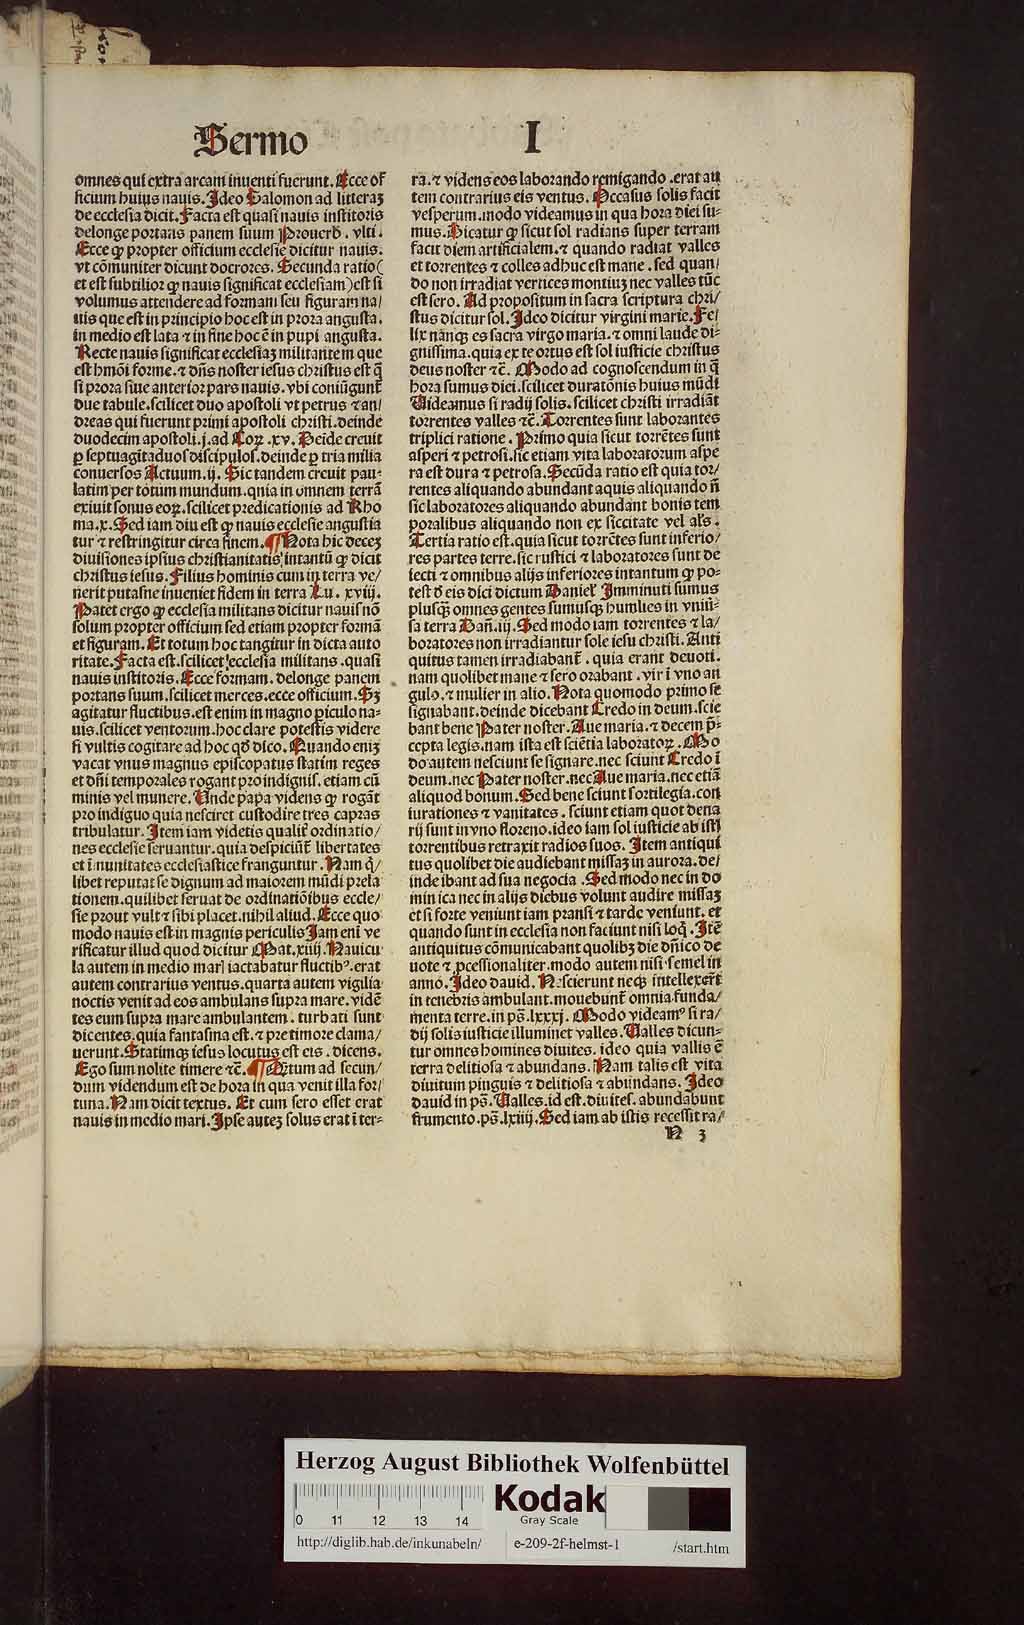 Sermo I
omnes qui extra arcam inuenti fuerunt. Ecce of
ficium huius nauis. Ideo Salomon ad litteraʒ
de ecclesia dicit. Facta est quasi nauis institoris
delonge portans panem suum Prouerb. vlti.
Ecce ꝙ propter officium ecclesie dicitur nauis.
vt cōmuniter dicunt docrores. Secunda ratio(
et est subtilior ꝙ nauis significat ecclesiam)est si
volumus attendere ad formam seu figuram na/
uis que est in principio hoc est in prora angusta.
in medio est lata ⁊ in fine hoc ē in pupi angusta.
Recte nauis significat ecclesiaʒ militantem que
est hmōi forme. ⁊ dn̄s noster iesus christus est q̄
si prora siue anterior pars nauis. vbi coniūgunt̄
due tabule. scilicet duo apostoli vt petrus ⁊ an/
dreas qui fuerunt primi apostoli christi. deinde
duodecim apostoli. j. ad Coꝝ. xv. Deīde creuit
ꝑ septuagitaduos discipulos. deinde ꝑ tria milia
conuersos Actuum. ij. Sic tandem creuit pau-
latim per totum mundum. qnia in omnem terrā
exiuit sonus eoꝝ. scilicet predicationis ad Rho
ma. x. Sed iam diu est ꝙ nauis ecclesie angustia
tur ⁊ restringitur circa finem. ¶ Nota hic deceʒ
diuisiones ipsius christianitatis intantū ꝙ dicit
christus iesus. Filius hominis cum in terra ve/
nerit putasne inueniet fidem in terra Lu. xviij.
Patet ergo ꝙ ecclesia militans dicitur nauis nō
solum propter officium sed etiam propter formā
et figuram. Et totum hoc tangitur in dicta auto
ritate. Facta est. scilicet ecclesia militans. quasi
nauis institoris. Ecce formam. delonge panem
portans suum. scilicet merces. ecce officium. Sʒ
agitatur fluctibus. est enim in magno ꝑiculo na-
uis. scilicet ventorum. hoc clare potestis videre
si vultis cogitare ad hoc qd̄ dico. Quando eniʒ
vacat vnus magnus episcopatus statim reges
et dn̄i temporales rogant pro indignis. etiam cū
minis vel munere. Unde papa videns ꝙ rogāt
pro indiguo quia nesciret custodire tres capras
tribulatur. Item iam videtis qualit̄ ordinatio/
nes ecclesie seruantur. quia despiciūt libertates
et īmunitates ecclesiastice franguntur. Nam q̄/
libet reputat se dignum ad maiorem mūdi prela
tionem. quilibet seruat de ordinatiōibus eccle/
sie prout vult ⁊ sibi placet. nihil aliud. Ecce quo
modo nauis est in magnis periculis Iam eni ve
rificatur illud quod dicitur Mat. xiiij. Nauicu
la autem in medio mari iactabatur fluctibꝰ. erat
autem contrarius ventus. quarta autem vigilia
noctis venit ad eos ambulans supra mare. vidē
tes eum supra mare ambulantem. turbati sunt
dicentes. quia fantasma est. ⁊ pre timore clama/
uerunt. Statimqʒ iesus locutus est eis. dicens.
Ego sum nolite timere ⁊c̄. ¶ Q̄tum ad secun/
dum videndum est de hora in qua venit illa for/
tuna. Nam dicit textus. Et cum sero esset erat
nauis in medio mari. Ipse auteʒ solus erat ī ter-
ra. ⁊ videns eos laborando remigando. erat au
tem contrarius eis ventus. Occasus solis facit
vesperum. modo videamus in qua hora diei su-
mus. Dicatur ꝙ sicut sol radians super terram
facit diem artificialem. ⁊ quando radiat valles
et torrentes ⁊ colles adhuc est mane. sed quan/
do non irradiat vertices montiuʒ nec valles tūc
est sero. Ad propositum in sacra scriptura chri/
stus dicitur sol. Ideo dicitur virgini marie. Fe/
lix nānqʒ es sacra virgo maria. ⁊ omni laude di-
gnissima. quia ex te ortus est sol iusticie christus
deus noster ⁊c̄. Modo ad cognoscendum in q̄
hora sumus diei. scilicet duratōnis huius mūdi
Uideamus si radij solis. scilicet christi irradiāt
torrentes valles ⁊c̄. Torrentes sunt laborantes
triplici ratione. Primo quia sicut torrētes sunt
asperi ⁊ petrosi. sic etiam vita laboratorum aspe
ra est dura ⁊ petrosa. Secūda ratio est quia tor/
rentes aliquando abundant aquis aliquando n̄
sic laboratores aliquando abundant bonis tem
poralibus aliquando non ex siccitate vel al̄s.
Tertia ratio est. quia sicut torrētes sunt inferio/
res partes terre. sic rustici ⁊ laboratores sunt de
iecti ⁊ omnibus alijs inferiores intantum ꝙ po-
test d̄ eis dici dictum Daniel̄ Imminuti sumus
plusqʒ omnes gentes sumusqʒ humlies in vniu-
sa terra Dan̄. iij. Sed modo iam torrentes ⁊ la/
boratores non irradiantur sole iesu christi. Anti
quitus tamen irradiabant̄. quia erant deuoti.
nam quolibet mane ⁊ sero orabant. vir ī vno an
gulo. ⁊ mulier in alio. Nota quomodo primo se
signabant. deinde dicebant Credo in deum. scie
bant bene Pater noster. Aue maria. ⁊ decem p̄-
cepta legis. nam ista est sciētia laboratoꝝ. Mo
do autem nesciunt se signare. nec sciunt Credo ī
deum. nec Pater noster. nec Aue maria. nec etiā
aliquod bonum. Sed bene sciunt sortilegia. con
iurationes ⁊ vanitates. sciunt etiam quot dena
rij sunt in vno floreno. ideo iam sol iusticie ab isti
torrentibus retraxit radios suos. Item antiqui
tus quolibet die audiebant missaʒ in aurora. de/
inde ibant ad sua negocia. Sed modo nec in do
minica nec in alijs diebus volunt audire missaʒ
et si forte veniunt iam pransi ⁊ tarde veniunt. et
quando sunt in ecclesia non faciunt nisi loq̄. Itē
antiquitus cōmunicabant quolibʒ die dn̄ico de
uote ⁊ ꝓcessionaliter. modo autem nisi semel in
anno. Ideo dauid. Nescierunt neqʒ intellexer̄t
in tenebris ambulant. mouebunt̄ omnia funda/
menta terre. in pš. lxxxj. Modo videamꝰ si ra/
dij solis iusticie illuminet valles. Ualles dicun-
tur omnes homines diuites. ideo quia vallis ē
terra delitiosa ⁊ abundans. Nam talis est vita
diuitum pinguis ⁊ delitiosa ⁊ abundans. Ideo
dauid in pš. Ualles. id est. diuites. abundabunt
frumento. pš. lxiiij. Sed iam ab istis recessit ra/
N 3
Herzog August Bibliothek Wolfenbüttel
0 11 12 13 14
Kodak
Gray Scale
http://diglib.hab.de/inkunabeln/ e-209-2f-helmst-1 /start.htm